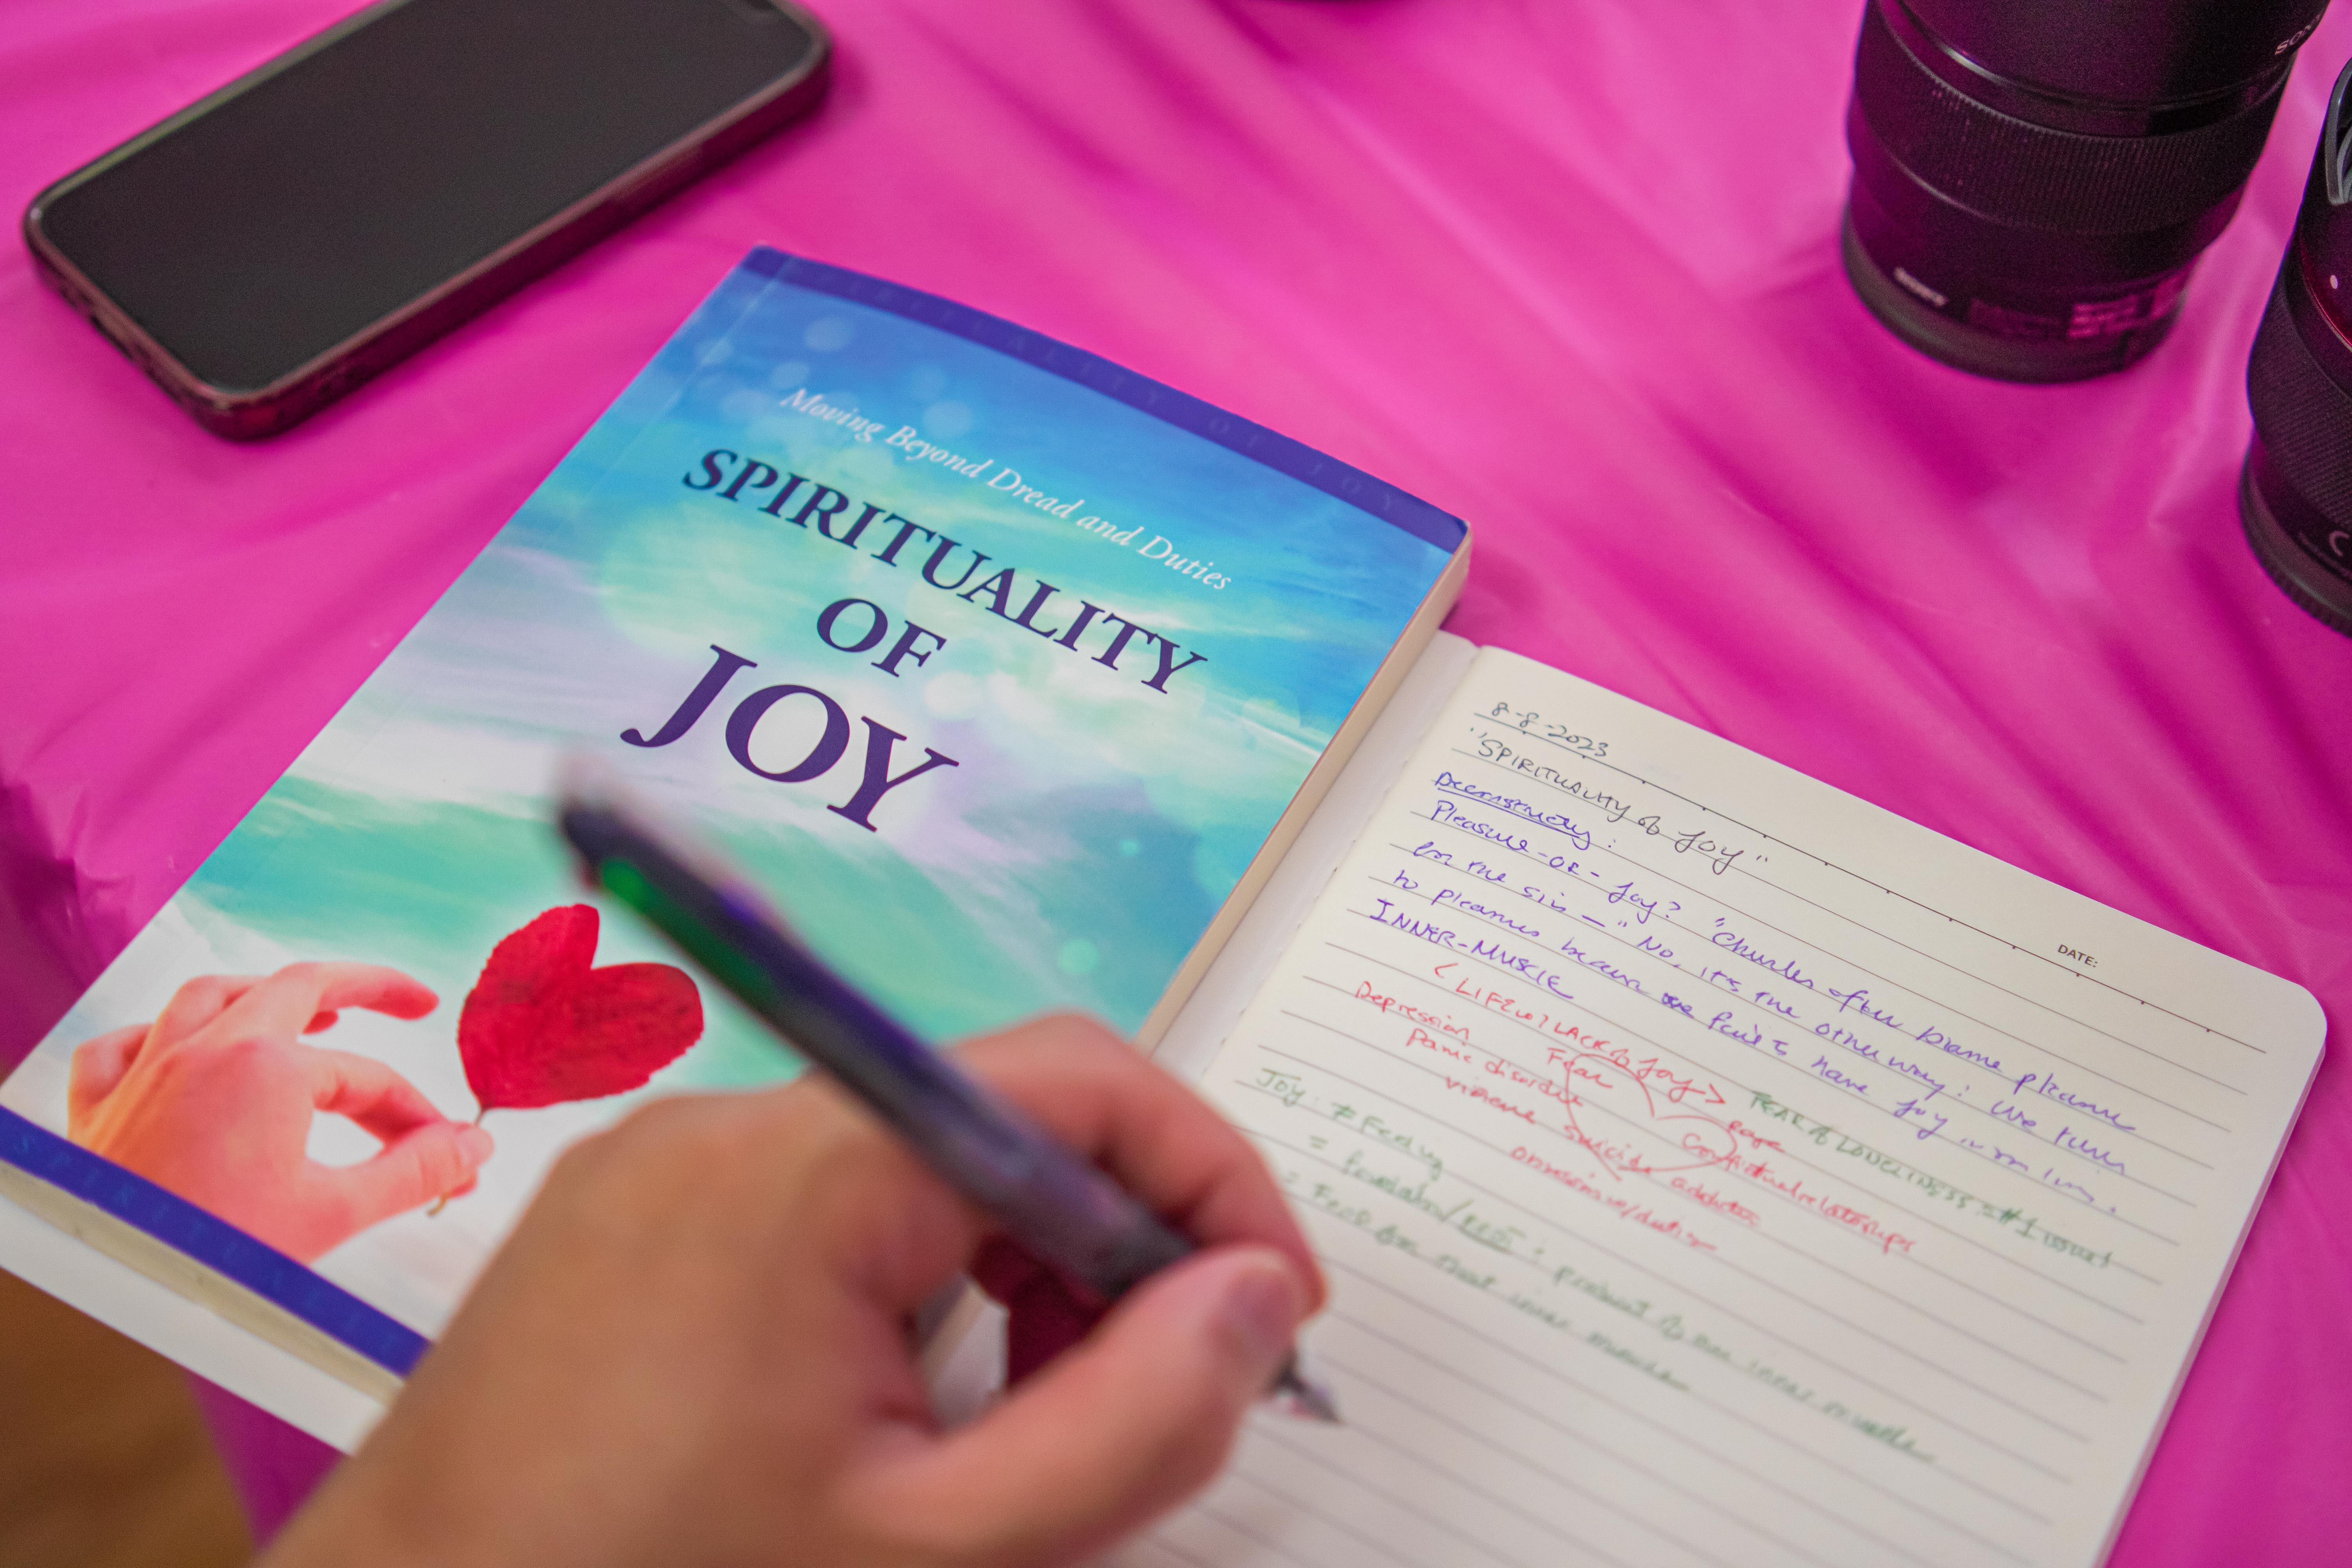 Moving Beyond Dread and Duties
SPIRITUALITY
OF
JOY
SPIRITUALITY OF JOY
SONY
8-8-2023
"SPIRITUALITY of Joy"
DATE:
Pleasure-OR-Joy? "Churches often blame pleasure
for the sin—" No, it's the other way: We turn
to pleasures because we fail to have joy in our lives.
INNER-MUSCLE
<LIFE LACK of Joy> FEAR of LONELINESS = #1
Depression Fear rage
Panic disorder Conflictual relationships
violence suicide
Joy: ≠ Feeling
= foundation/root: product of an inner muscle
= Food for that inner muscle